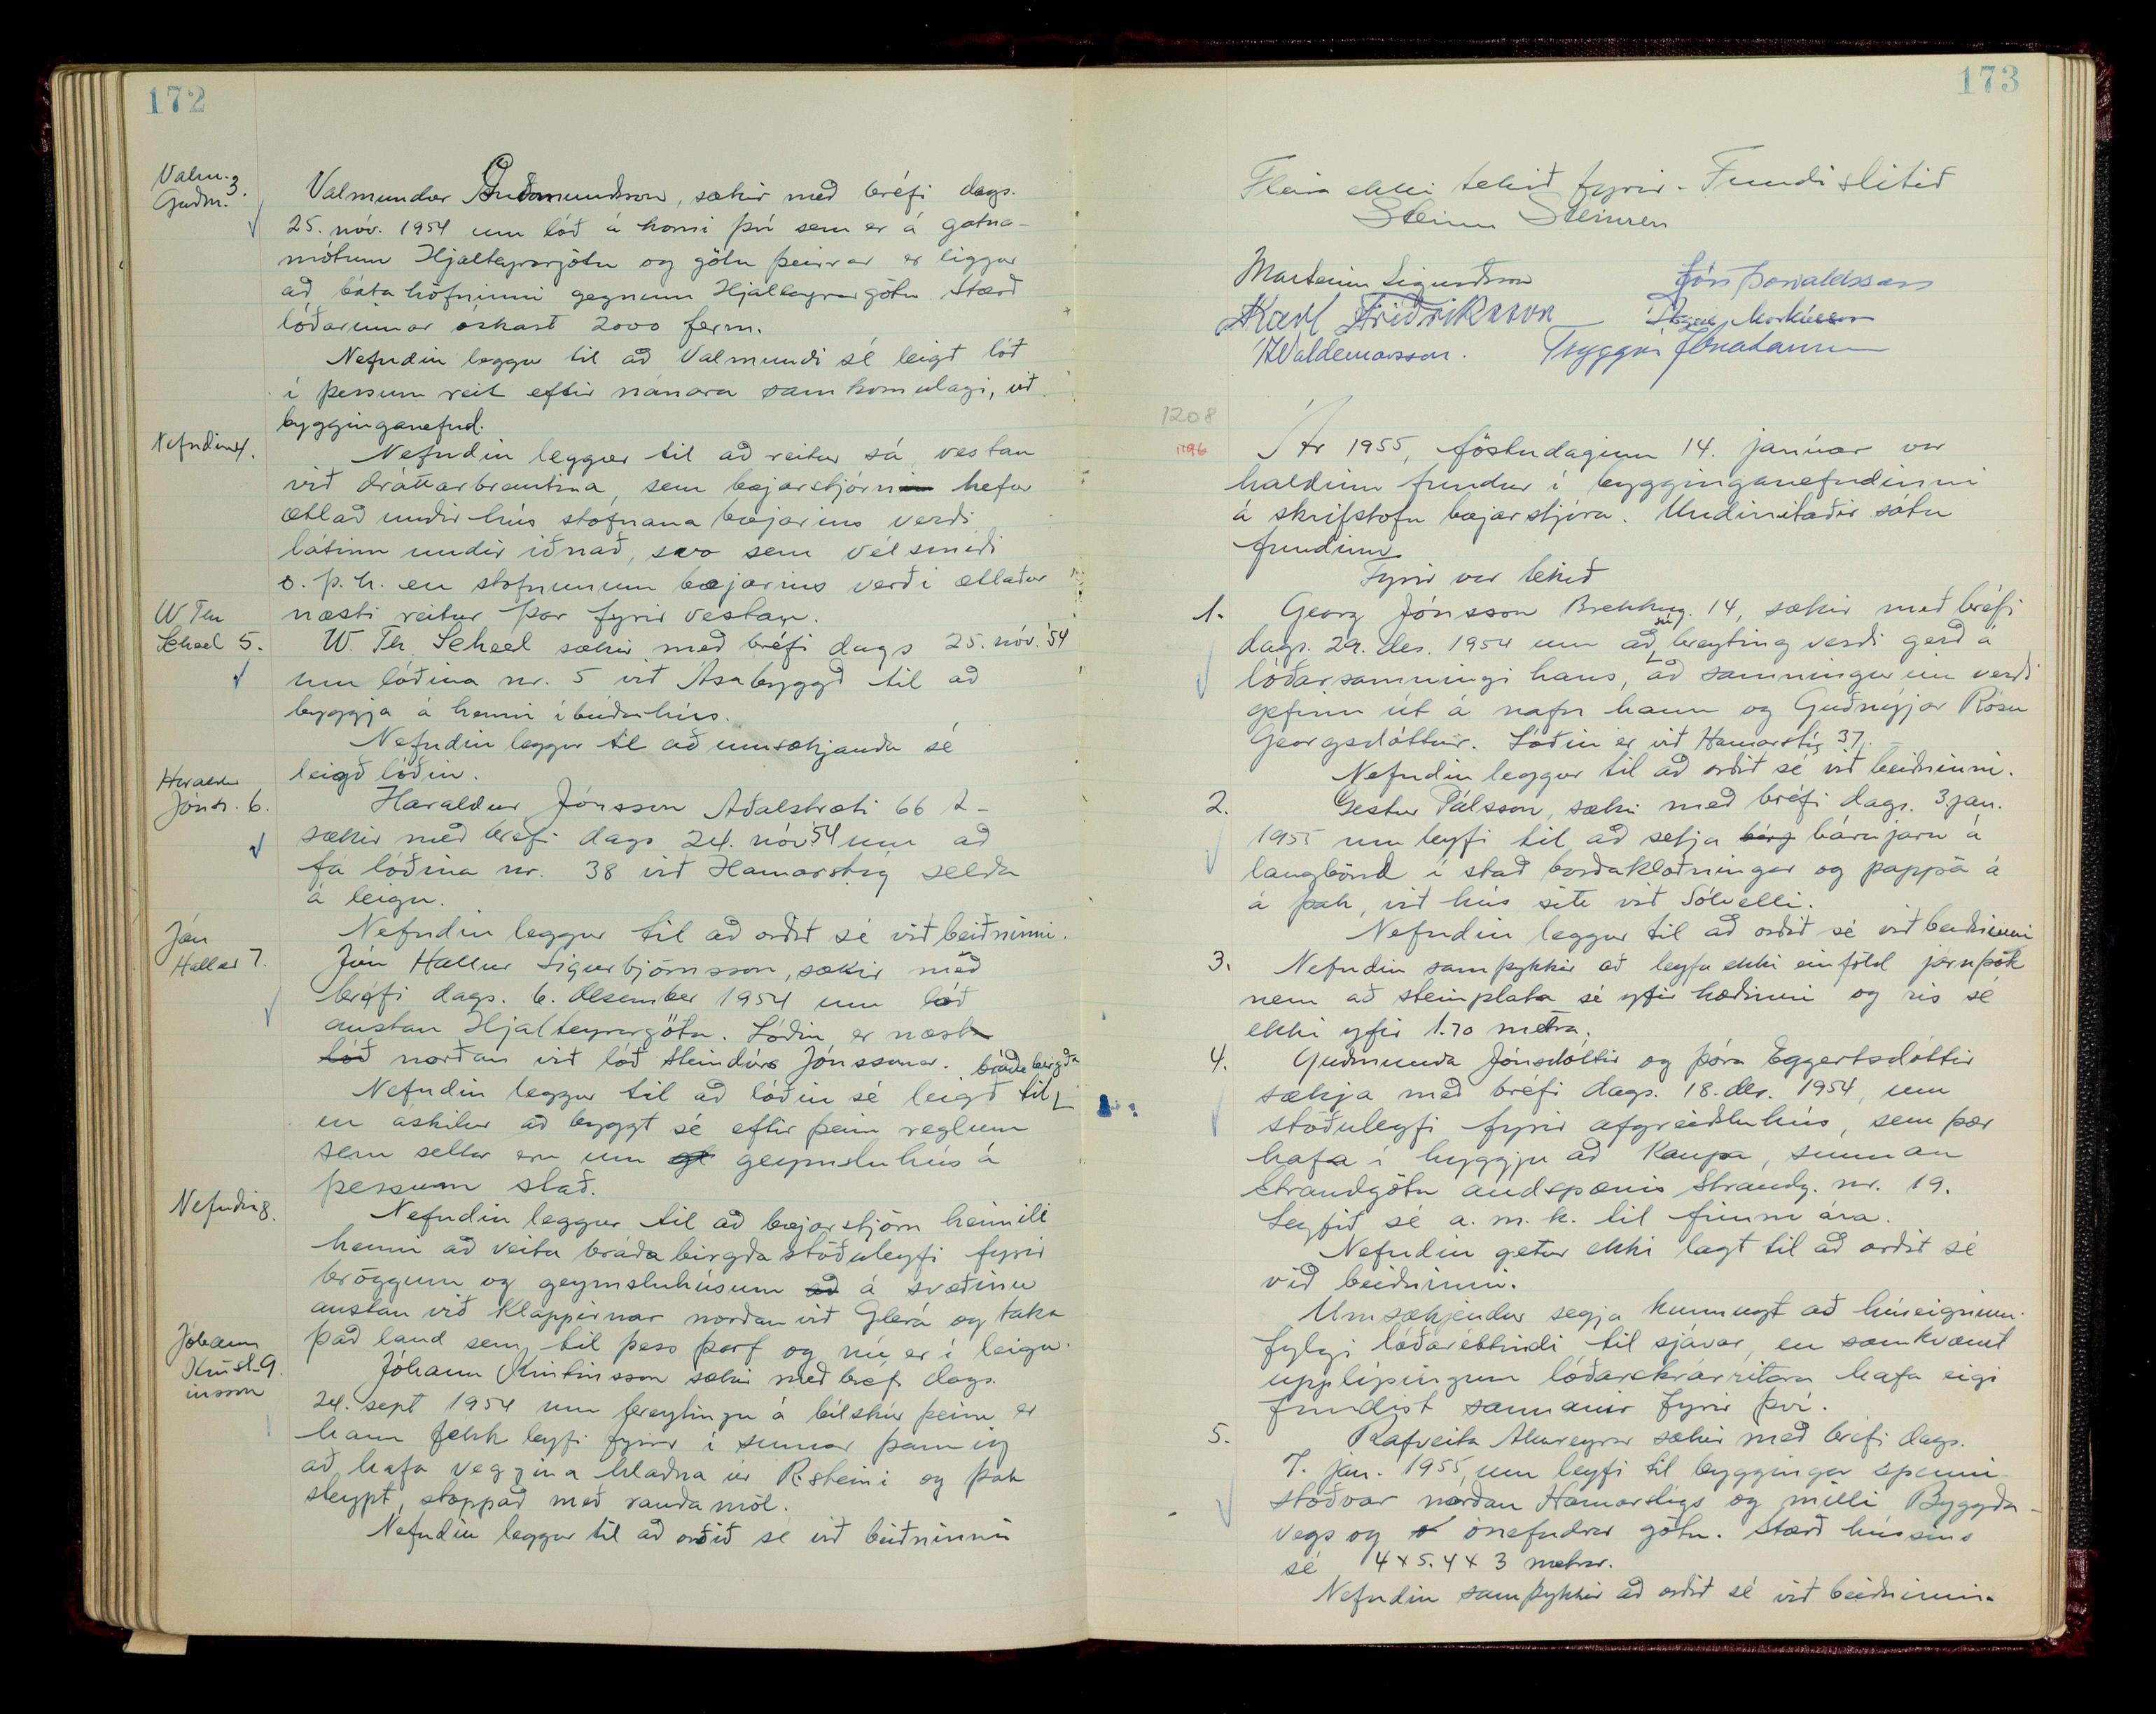 172
Valm. 3.
Guðm.
Valmundur Guðmundsson, sækir með bréfi dags.
25. nóv. 1954 um lóð á horni því sem er á gatna-
mótum Hjalteyrargötu og götu þeirrar er liggur
að bátahöfninni gegnum Hjalteyrargötu Stærð
lóðarinnar óskast 2000 ferm.
Nefndin leggur til að Valmundi sé leigð lóð
í þessum reit eftir nánara samkomulagi, við
bygginganefnd.
Nefndin 4.
Nefndin leggur til að reitur sá vestan
við dráttarbrautina, sem bæjarstjórn hefur
ætlað undir hús stofnana bæjarins verði
látinn undir iðnað, svo sem vélsmiði
o. þ. h. en stofnunum bæjarins verði ætlaður
næsti reitur þar fyrir vestan.
W Th
Scheel 5.
W. Th. Scheel sækir með bréfi dags 25. nóv. '54
um lóðina nr. 5 við Ásabyggð til að
byggja á henni íbúðarhús.
Nefndin leggur til að umsækjanda sé
leigð lóðin.
Haraldur
Jónss. 6.
Haraldur Jónsson Aðalstræti 66
sækir með bréfi dags 24. nóv '54 um að
fá lóðina nr. 38 við Hamarstíg selda
á leigu.
Nefndin leggur til að orðið sé við beiðninni.
Jón
Hallur 7.
Jón Hallur Sigurbjörnsson, sækir með
bréfi dags. 6. desember 1954 um lóð
austan Hjalteyrargötu. Lóðin er næst
lóð norðan við lóð Steindórs Jónssonar.
Nefndin leggur til að lóðin sé leigð til bráðabirgða
en áskilur að byggt sé eftir þeim reglum
sem settar eru um geymsluhús á
þessum stað.
Nefndin 8.
Nefndin leggur til að bæjarstjórn heimili
henni að veita bráðabirgða stöðuleyfi fyrir
bröggum og geymsluhúsum að á svæðinu
austan við Klappirnar norðan við Glerá og taka
það land sem til þess þarf og nú er í leigu.
Jóhann
Krist- 9.
insson
Jóhann Kristinsson sækir með bréfi dags.
24. sept 1954 um breytingu á bílskúr þeim er
hann fékk leyfi fyrir í sumar þannig
að hafa veggina hlaðna úr R.steini og þak
steypt, stoppað með rauðamöl.
Nefndin leggur til að orðið sé við beiðninni
173
Fleira ekki tekið fyrir. Fundi slitið
Steinn Steinsen
Marteinn Sigurðsson
Jón Þorvaldsson
Karl Friðriksson
Stefán Markússon
Tryggvi Jónatansson
1208
1196
Ár 1955, föstudaginn 14. janúar var
haldinn fundur í bygginganefndinni
á skrifstofu bæjarstjóra. Undirritaðir sátu
fundinn.
Fyrir var tekið
1. Georg Jónsson Brekkug. 14, sækir með bréfi
dags. 29. des. 1954 um að sú breyting verði gerð á
lóðarsamningi hans, að samningurinn verði
gefinn út á nafn hann og Guðnýjar Rósu
Georgsdóttur. Lóðin er við Hamarstíg 37.
Nefndin leggur til að orðið sé við beiðninni.
2. Gestur Pálsson, sækir með bréfi dags. 3. jan.
1955 um leyfi til að setja bárujárn á
langbönd í stað borðaklæðningar og pappa á
á þak, við hús sitt við Sólvelli.
Nefndin leggur til að orðið sé við beiðninni
3. Nefndin samþykkir að leyfa ekki einföld járnþök
nem að steinplata sé yfir hæðinni og ris sé
ekki yfir 1.70 metra.
4. Guðmunda Jónsdóttir og Þóra Eggertsdóttir
sækja með bréfi dags. 18. des. 1954, um
stöðuleyfi fyrir afgreiðsluhús, sem þær
hafa í hyggju að Kaupa, sunnan
Strandgötu andspænis Strandg. nr. 19.
Leyfið sé a. m. k. til fimm ára.
Nefndin getur ekki lagt til að orðið sé
við beiðninni.
Umsækjendur segja kunnugt að húseigninni
fylgi lóðaréttindi til sjávar, en samkvæmt
upplýsingum lóðarskrárritara hafa eigi
fundist sannanir fyrir því.
5. Rafveita Akureyrar sækir með bréfi dags.
7. jan. 1955, um leyfi til byggingar spenni
stöðvar norðan Hamarstígs og milli Byggða-
vegs og ónefndrar götu. Stærð hússins
sé 4 x 5.4 x 3 metrar.
Nefndin samþykkir að orðið sé við beiðninni.